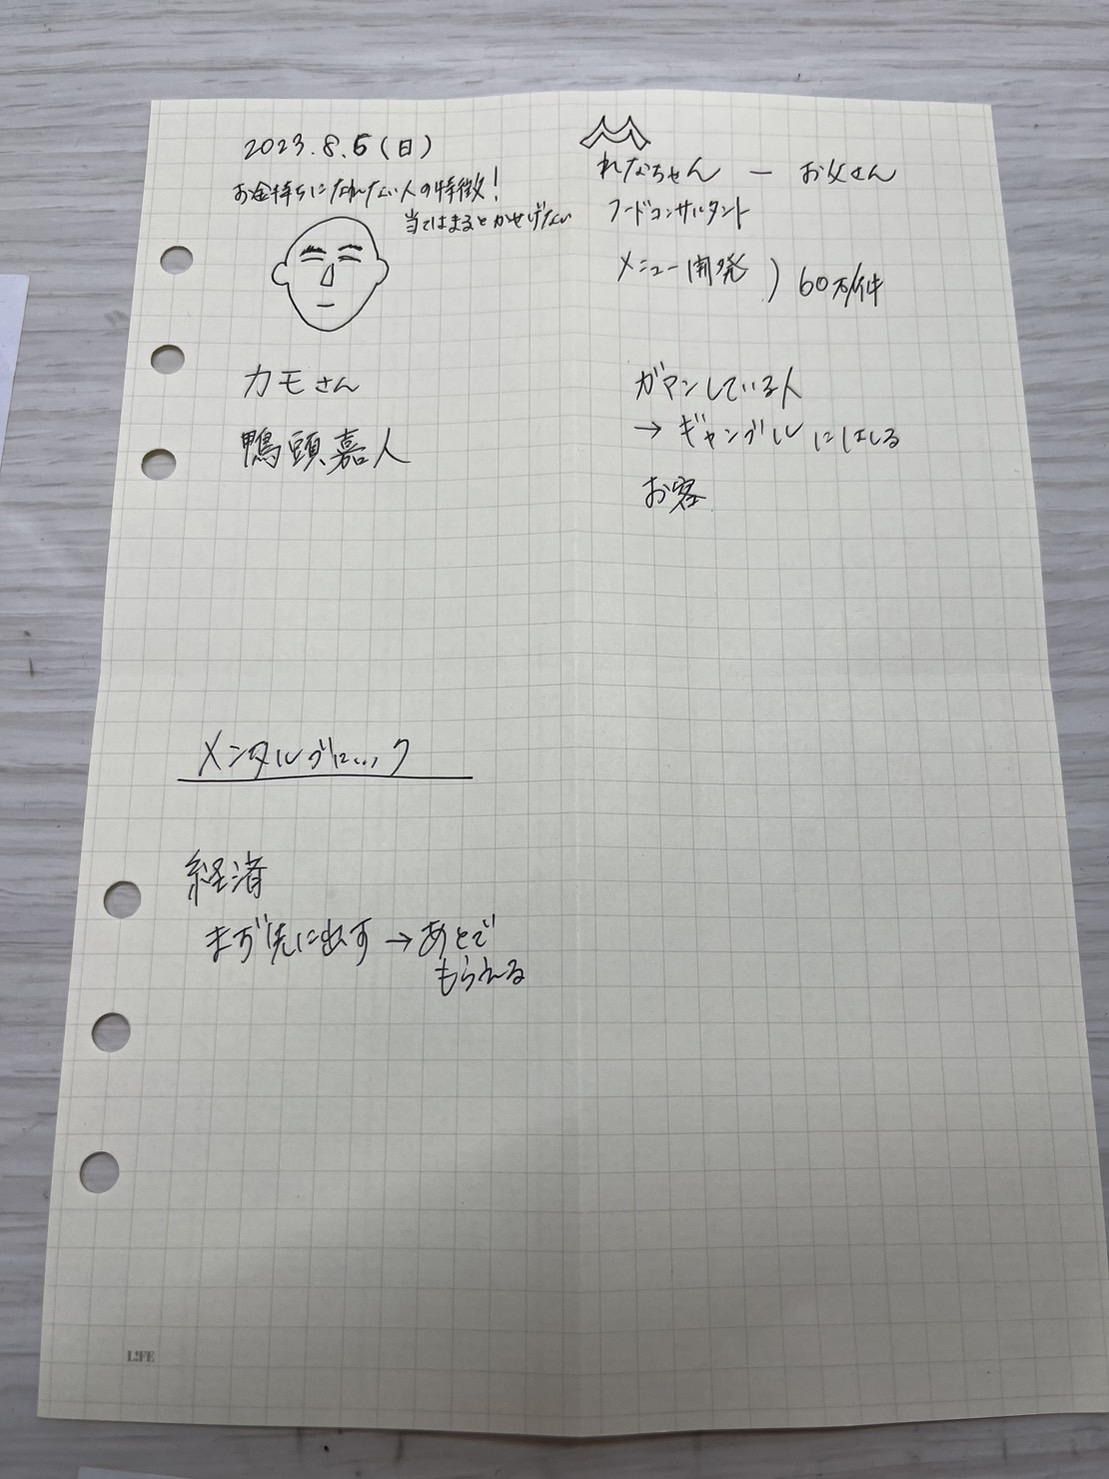 2023.8.6(日)
お金持ちになれない人の特徴!
当てはまるとかせげない
カモさん
鴨頭嘉人
メンタルブロック
経済
まず先に出す→あとで
もらえる
れなちゃん ー お父さん
フードコンサルタント
メニュー開発 ) 60万/件
ガマンしている人
→ギャンブルにはしる
お客
L!FE